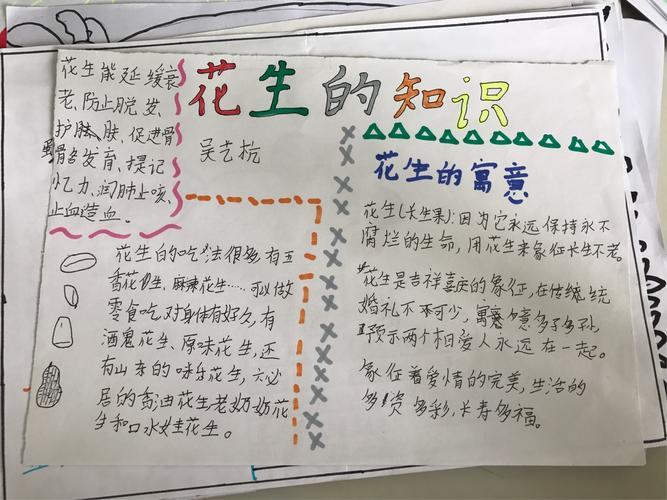 花生的知识
吴艺杭
花生能延缓衰
老、防止脱发、
护肤肤、促进骨
骼发育、提记
忆力、润肺止咳、
止血造血。
花生白的吃法很多,有五
香花生、麻辣花生……可以做
零食吃,对身体有好久,有
酒鬼花生、原味花生,还
有山东的味花生,六必
居的香油花生,老奶奶花
生和口水娃花生。
花生的寓意
花生(长生果):因为它永远保持永不
腐烂的生命,用花生来象征长生不老。
花生是吉祥喜庆的象征,在传统
婚礼不可少,寓意多子多孙,
预示两个相爱人永远在一起。
象征着爱情的完美,生活的
多姿多彩,长寿多福。